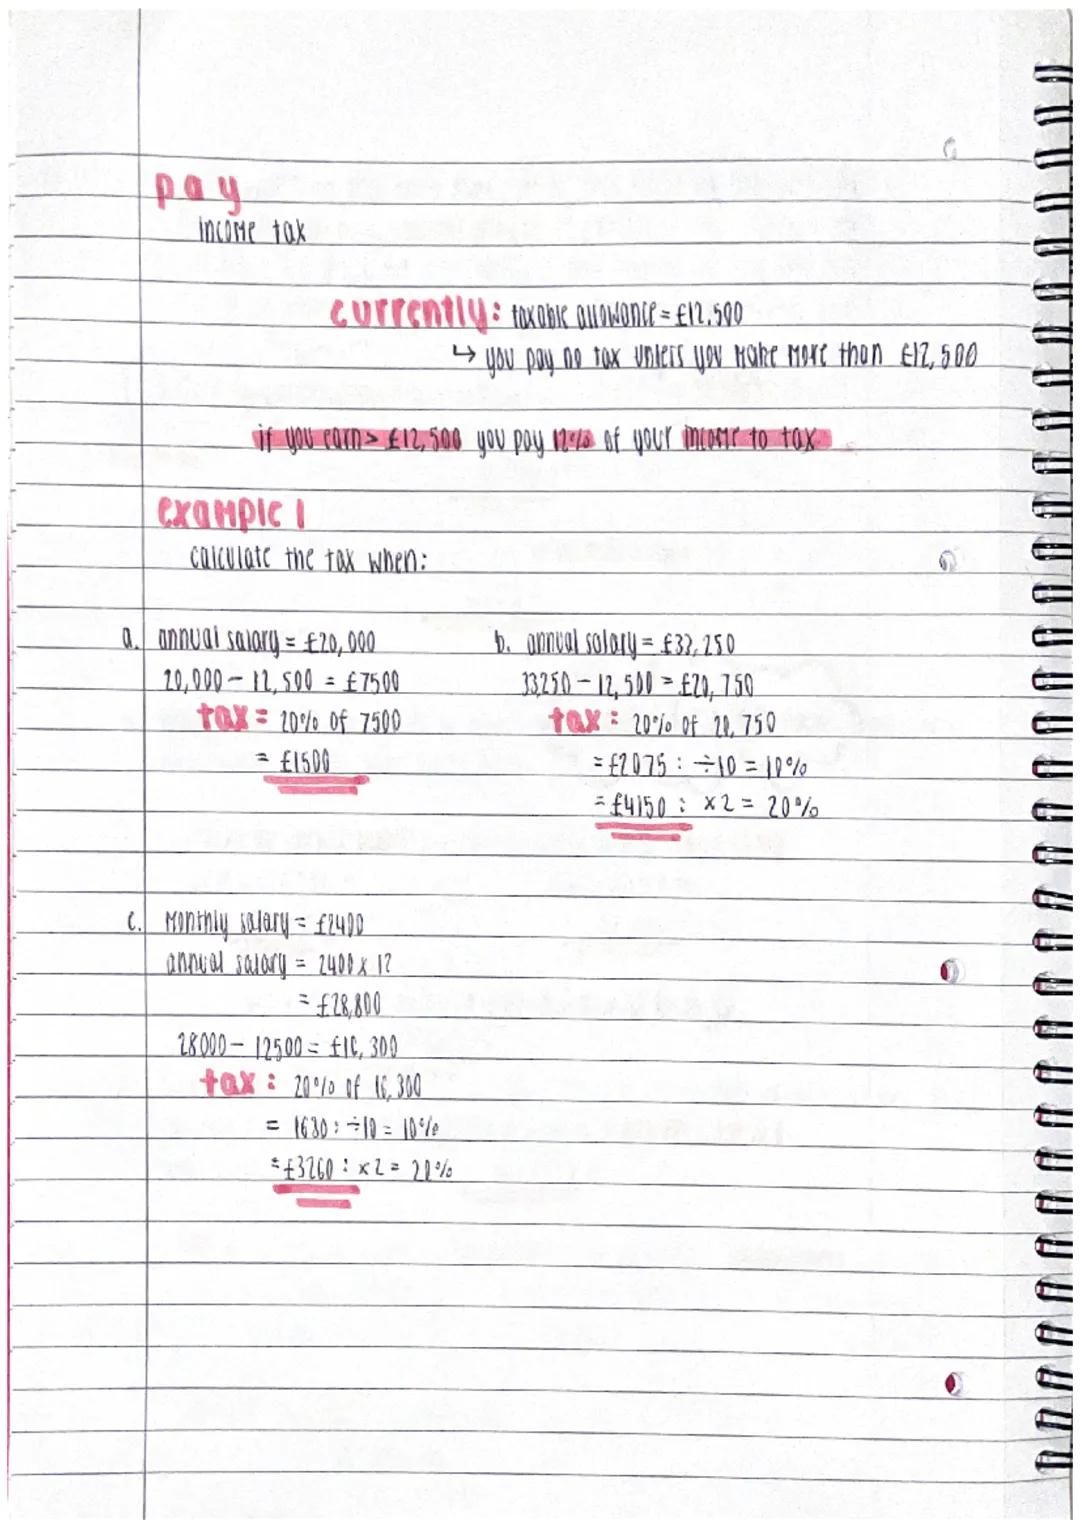 pay
income tax
currently: taxable allowance = £12,500
↳ you pay no tax unless you make more than £12,500
if you earn > £12,500 you pay 12% of your income to tax
example 1
calculate the tax when:
a. annual salary = £20,000
20,000 - 12,500 = £7500
tax = 20% of 7500
= £1500
b. annual salary = £33,250
33,250 - 12,500 = £20,750
tax: 20% of 20,750
= £2075 : ÷10 = 10%
= £4150 : x2 = 20%
c. Monthly salary = £2400
annual salary = 2400 x 12
= £28,800
28000 - 12500 = £16,300
tax: 20% of 16,300
= 1630 : ÷10 = 10%
= £3260 : x2 = 20%